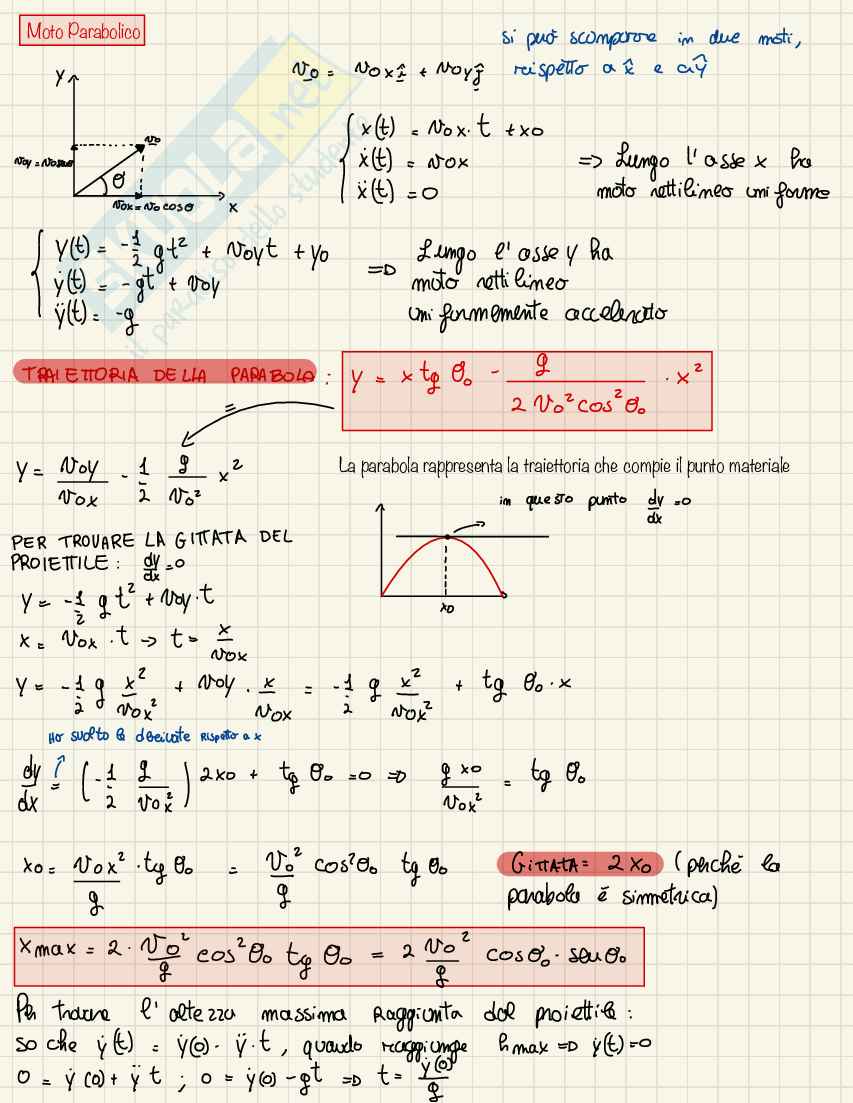 Moto Parabolico
si può scomporre in due moti,
rispetto a x̂ e a ŷ
v̲0 = v0x î + v0y ĵ
y
v̲0
v0y = v0senθ
θ
v0x = v0 cosθ
x
x(t) = v0x · t + x0
ẋ(t) = v0x
ẍ(t) = 0
=> Lungo l'asse x ha
moto rettilineo uniforme
y(t) = -1/2 gt² + v0yt + y0
ẏ(t) = -gt + v0y
ÿ(t) = -g
=> Lungo l'asse y ha
moto rettilineo
uniformemente accelerato
SKUOLA.net
il paradiso dello studente
TRAIETTORIA DELLA PARABOLA : y = x tg θ₀ - g / 2 v₀² cos² θ₀ · x²
=
y = v0y / v0x - 1/2 g / v₀² x²
La parabola rappresenta la traiettoria che compie il punto materiale
in questo punto dy/dx = 0
x0
PER TROVARE LA GITTATA DEL
PROIETTILE : dy/dx = 0
y = -1/2 g t² + v0y · t
x = v0x · t -> t = x / v0x
y = -1/2 g x² / v0x² + v0y · x / v0x = -1/2 g x² / v0x² + tg θ₀ · x
Ho svolto la derivata rispetto a x
dy/dx = (-1/2 g / v0x²) 2x0 + tg θ₀ = 0 => g x0 / v0x² = tg θ₀
x0 = v0x² / g · tg θ₀ = v₀² / g cos² θ₀ tg θ₀
GITTATA = 2 x0 (perché la
parabola è simmetrica)
xmax = 2 · v₀² / g cos² θ₀ tg θ₀ = 2 v₀² / g cos θ₀ · sen θ₀
Per trovare l'altezza massima raggiunta dal proiettile :
so che ẏ(t) = ẏ(0) - ÿ · t , quando raggiunge hmax => ẏ(t) = 0
0 = ẏ(0) + ÿ t ; 0 = ẏ(0) - gt => t = ẏ(0) / g